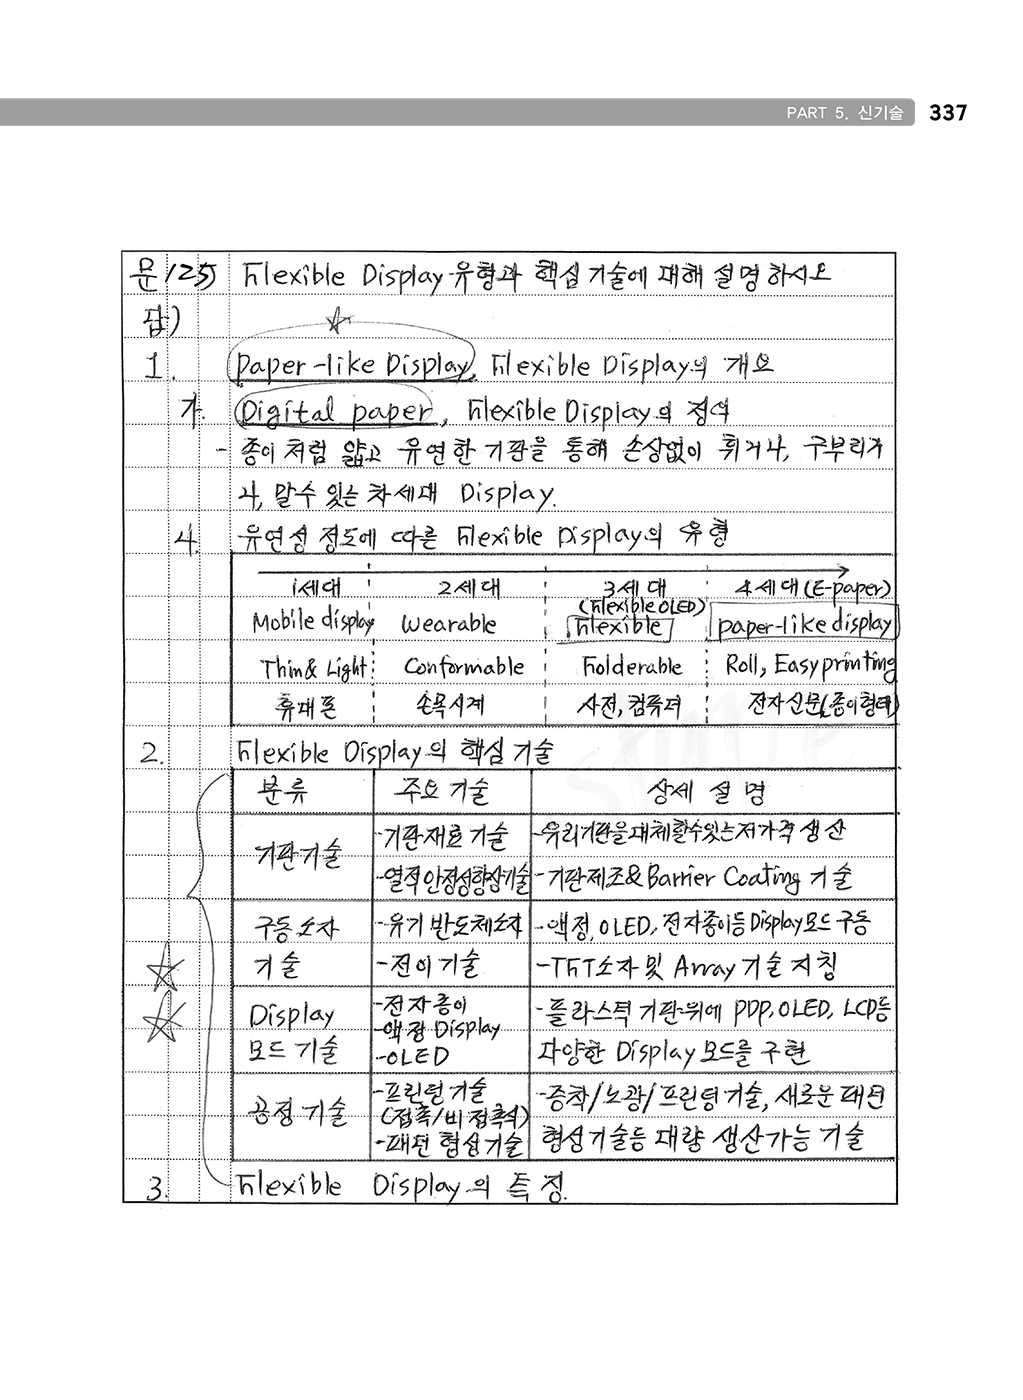 PART 5. 신기술 337
문125) Flexible Display 유형과 핵심 기술에 대해 설명하시오
답)
1. Paper-like Display, Flexible Display의 개요
가. Digital paper, Flexible Display의 정의
- 종이처럼 얇고 유연한 기판을 통해 손상없이 휘거나, 구부리거
나, 말수 있는 차세대 Display.
나. 유연성 정도에 따른 Flexible Display의 유형
1세대 2세대 3세대 4세대(E-paper)
(Flexible OLED)
Mobile display Wearable Flexible paper-like display
Thin & Light Conformable Folderable Roll, Easy printing
휴대폰 손목시계 사전, 컴퓨터 전자신문(종이형태)
2. Flexible Display의 핵심 기술
분류 주요 기술 상세 설명
기판기술 -기판재료 기술 -유리기판을 대체할수있는 저가격 생산
-열적안정성향상기술 -기판제조&Barrier Coating 기술
구동소자 -유기 반도체소자 -액정, OLED, 전자종이등 Display모드 구동
기술 -전이 기술 -TFT소자 및 Array 기술 지칭
Display -전자종이 -플라스틱 기판위에 PDP, OLED, LCD등
-액정 Display
모드 기술 -OLED 다양한 Display 모드를 구현
공정 기술 -프린팅 기술 -증착/노광/프린팅기술, 새로운 패턴
(접촉/비접촉식)
-패턴 형성기술 형성기술등 대량 생산가능 기술
3. Flexible Display의 특징.